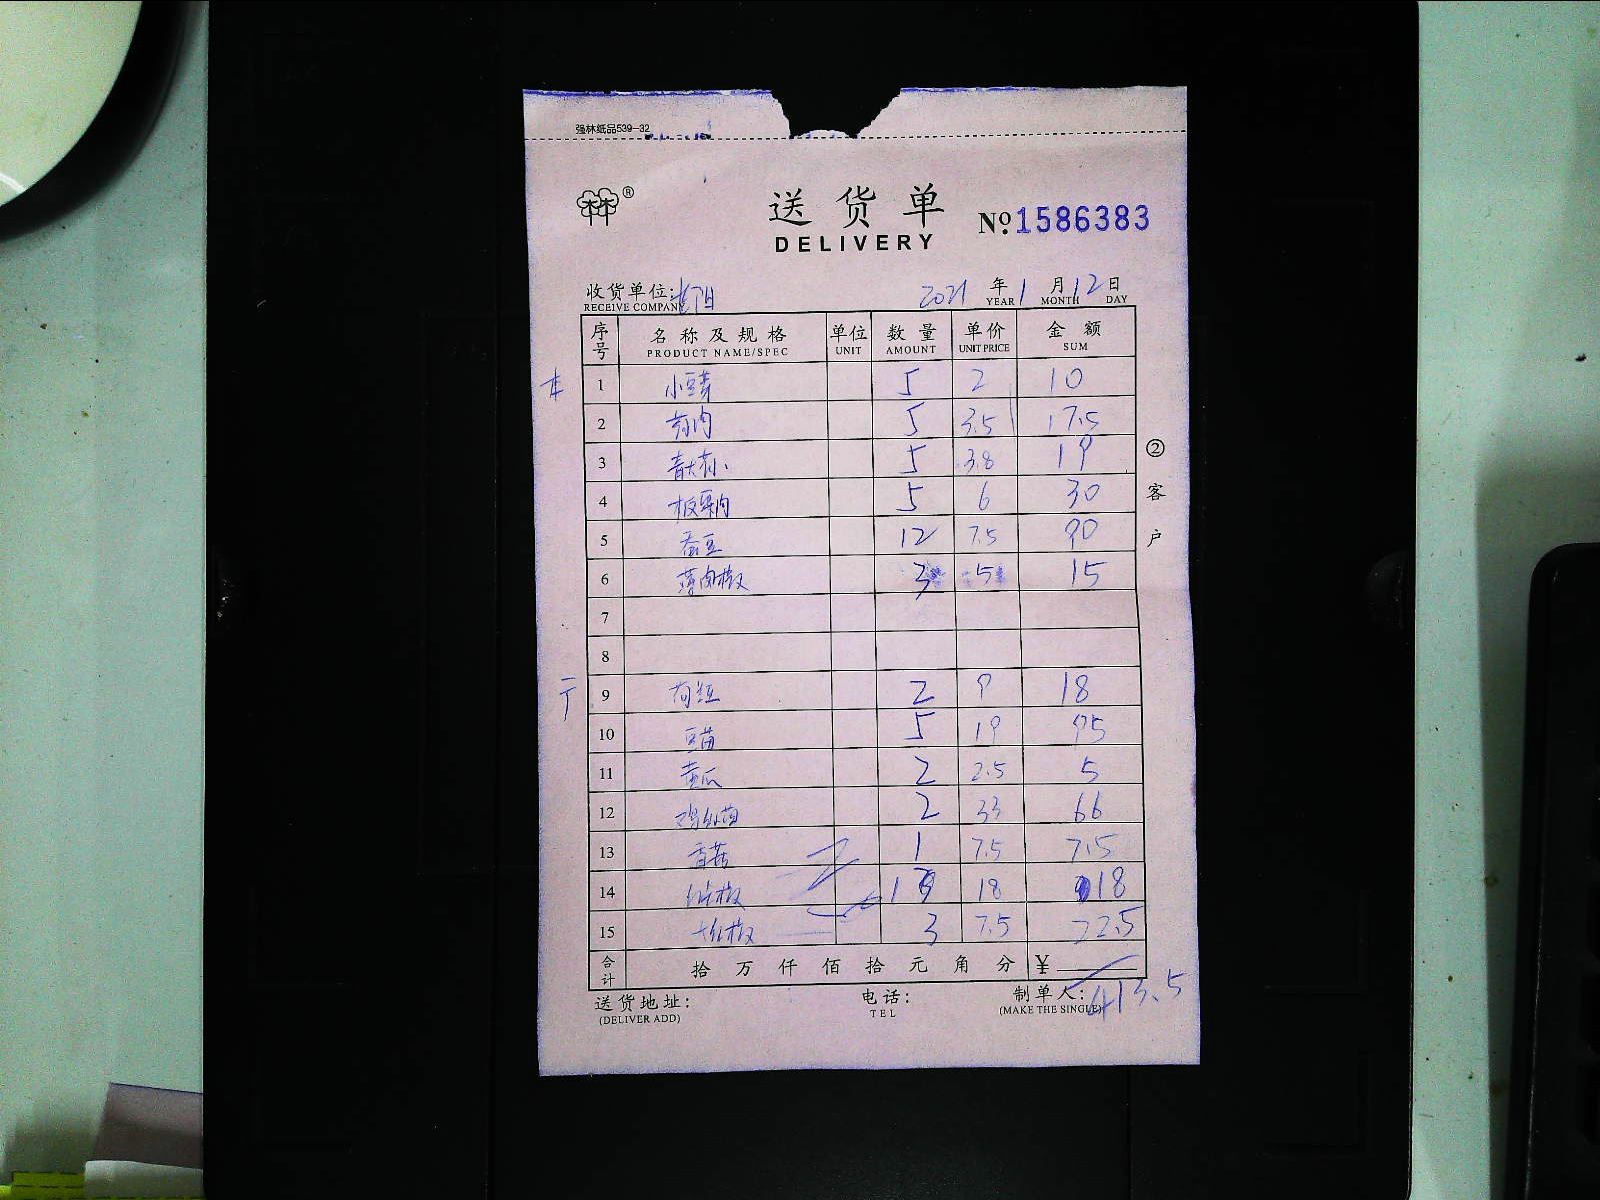 强林纸品539-32
® 送货单 №1586383
DELIVERY
收货单位: 2021 年 1 月 12 日
RECEIVE COMPANY YEAR MONTH DAY
序号 名称及规格 单位 数量 单价 金额
PRODUCT NAME/SPEC UNIT AMOUNT UNIT PRICE SUM
1 小豆芽 5 2 10
2 5 3.5 17.5
3 5 3.8 19
4 板栗肉 5 6 30
5 蚕豆 12 7.5 90
6 薄肉椒 3 5 15
7
8
9 2 9 18
10 豆苗 5 19 95
11 黄瓜 2 2.5 5
12 2 33 66
13 香菇 1 7.5 7.5
14 1 18 18
15 3 7.5 22.5
②客户
合计 拾万仟佰拾元角分 ¥
413.5
送货地址: 电话: 制单人:
(DELIVER ADD) TEL (MAKE THE SINGLE)